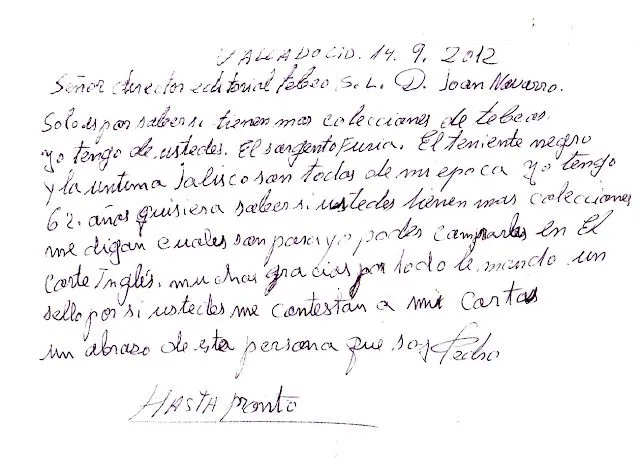 VALLADOLID. 14. 9. 2012
Señor director editorial tebeo S. L. D. Joan Navarro.
Solo es por saber si tienen mas colecciones de tebeos.
yo tengo de ustedes. El sargento Furia. El teniente negro
y la untima Jalisco son todas de mi epoca yo tengo
62. años quisiera saber si ustedes tienen mas colecciones
me digan cuales son para yo poder comprarlas en El
Corte Inglés. muchas gracias por todo le mando un
sello por si ustedes me contestan a mi cartas
un abrazo de esta persona que soy Pedro
HASTA pronto